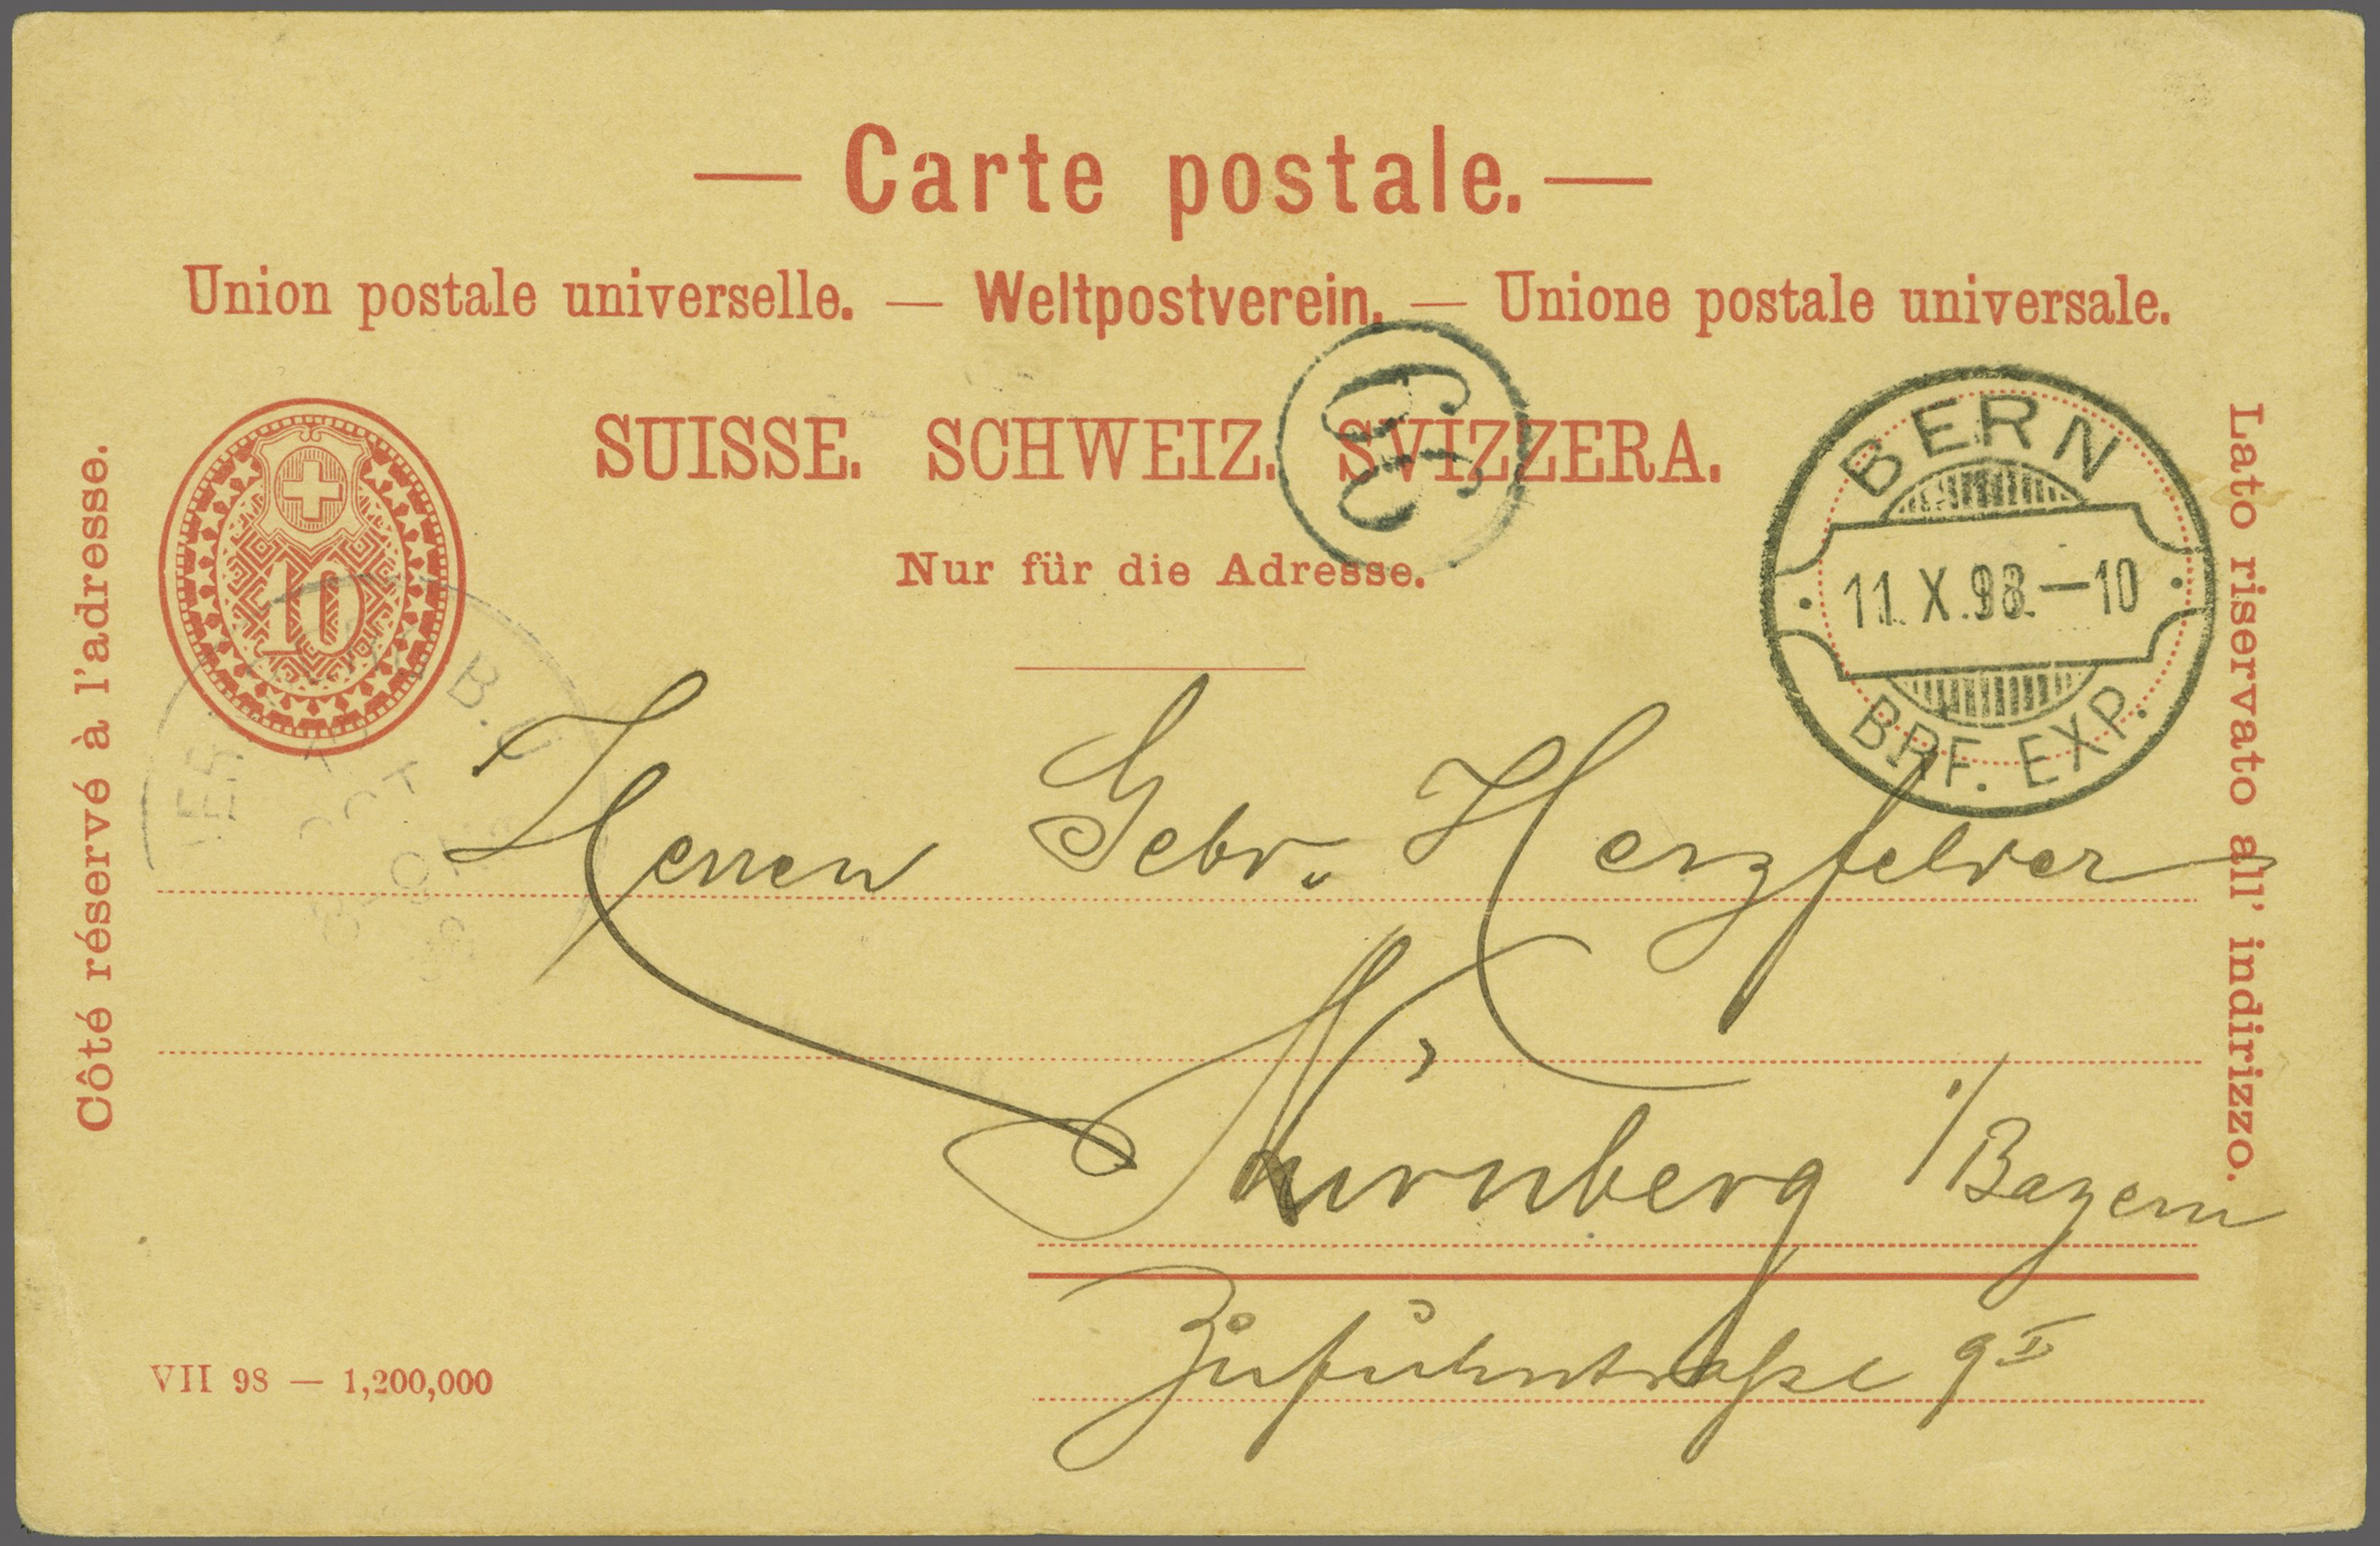 — Carte postale. —
Union postale universelle. — Weltpostverein. — Unione postale universale.
SUISSE. SCHWEIZ. SVIZZERA.
Nur für die Adresse.
Côté réservé à l'adresse.
Lato riservato all' indirizzo.
10
BERN
11. X. 98. — 10
BRF. EXP.
B.
OCT
98
Herren Gebr. Herzfelder
Nürnberg i/Bayern
Zufuhrstraße 9 II
VII 98 — 1,200,000